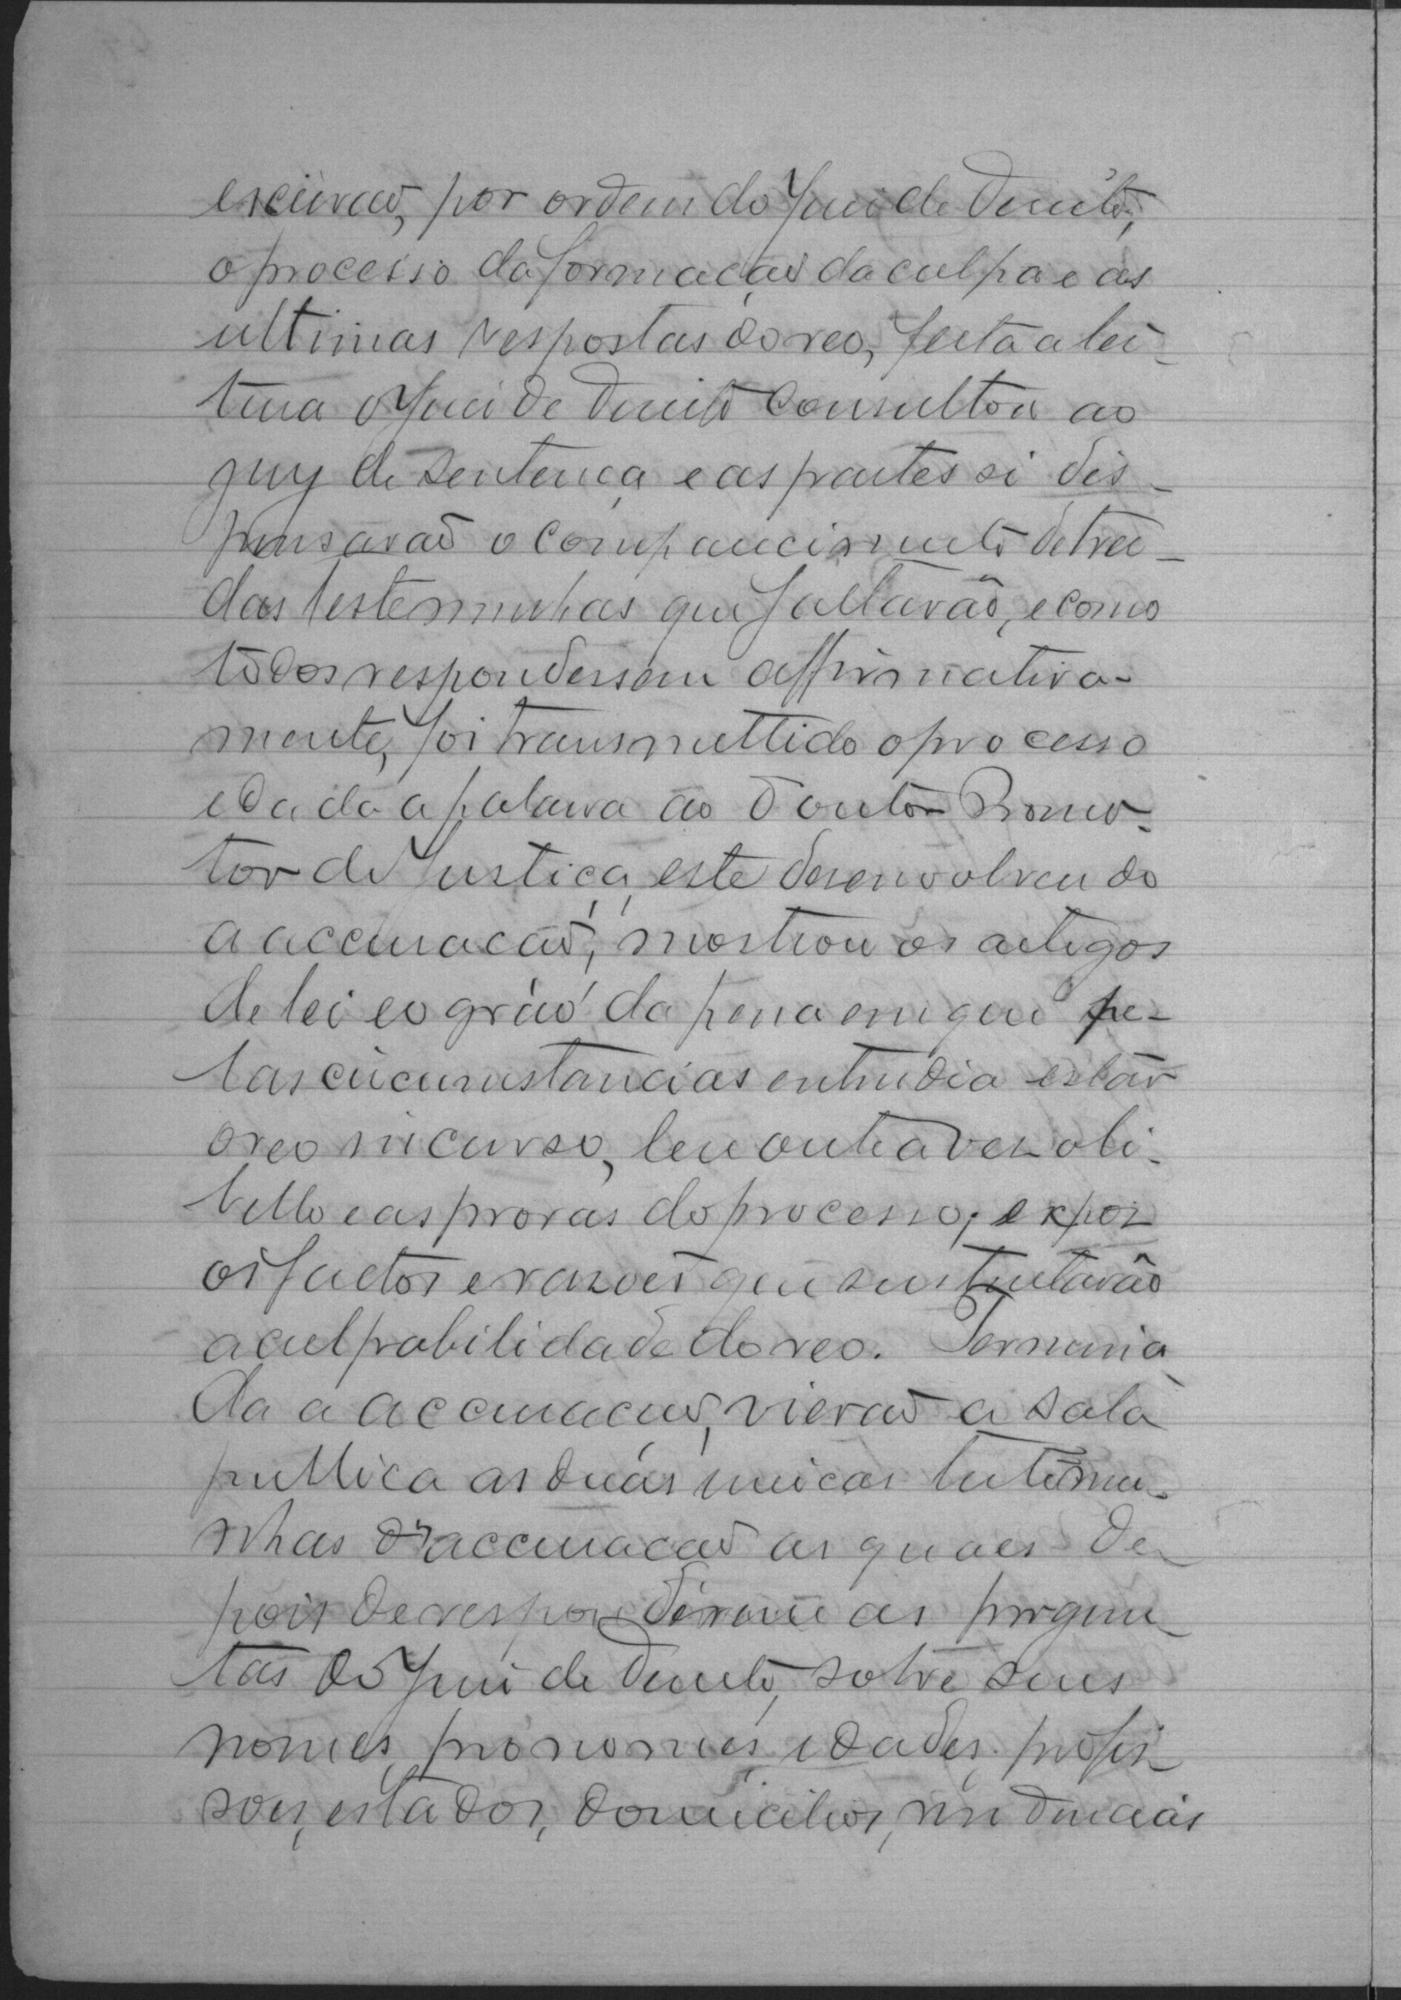 escrivão, por ordem do Juiz de Direito,
o processo da formação da culpa e as
ultimas respostas do reo, feita a lei-
tura o Juiz de Direito consultou ao
jury de sentença e as partes si dis-
pensavão o comparecimento de tres
das testemunhas que faltarão, e como
todos respondessem affirmativa-
mente, foi transmettido o processo
e dada a palavra ao Doutor Promo-
tor de Justiça, este desenvolvendo
a accusação, mostrou os artigos
de lei e o gráo da pena em que pe-
las circumstancias entendia estar
o reo incurso, leu outra vez o li-
bello e as provas do processo, expoz
os factos e rasões que sustentavão
a culpabilidade do reo. Termina
da a accusação, vierão a sala
publica as duas unicas testemu-
nhas d'accusação as quaes de-
pois de responderem as pergun-
tas do Juiz de Direito, sobre seus
nomes, pronomes, idades, profis-
soes, estados, domicilios, residencias